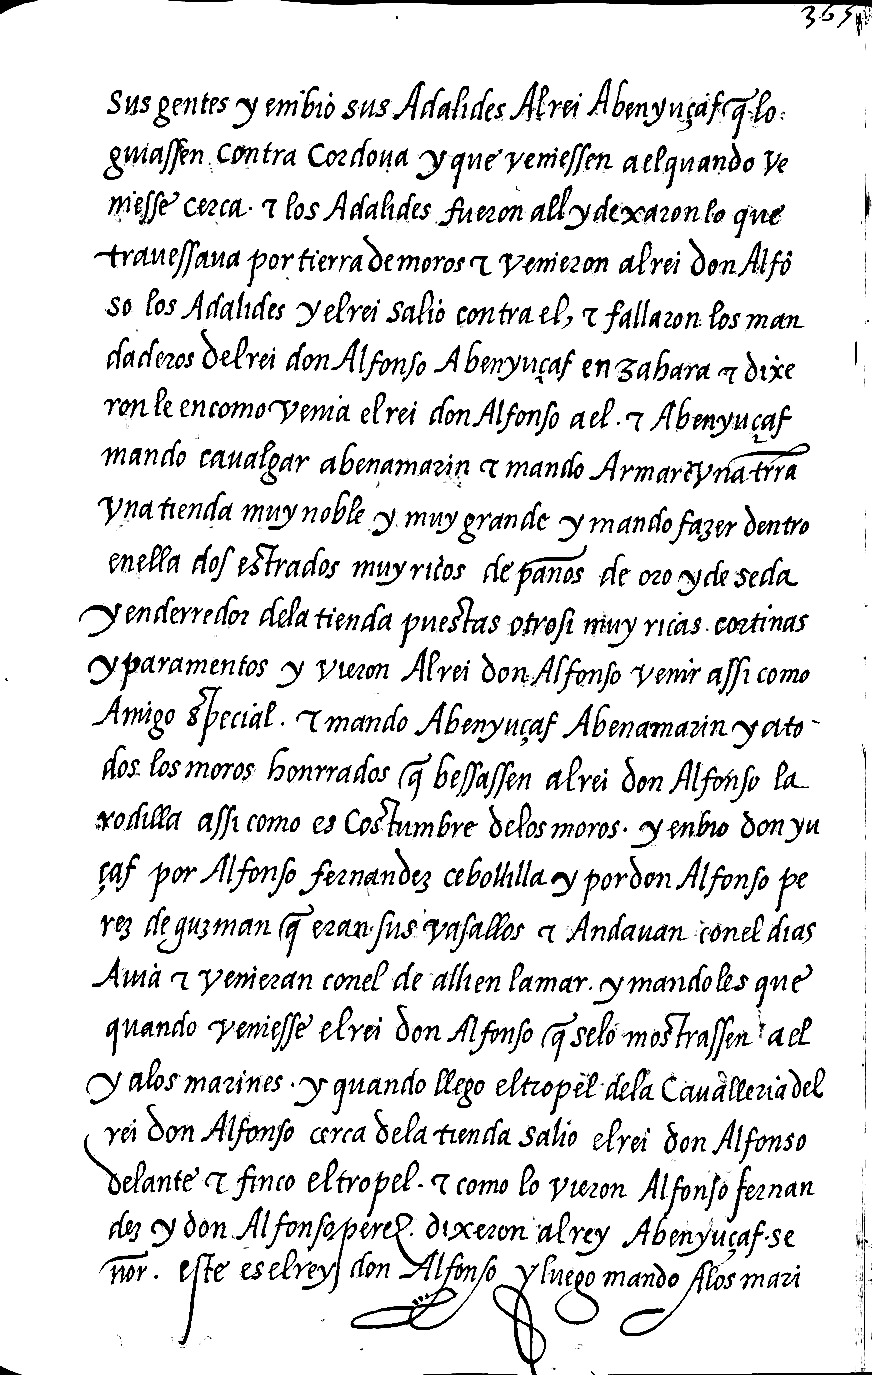 365
sus gentes y embio sus Adalides Al rei Abenyuçaf q̃ lo
guiassen contra Cordoua y que veniessen a el quando ve
niesse cerca. τ los Adalides fueron all y dexaron lo que
trauessaua por tierra de moros τ venieron al rei don Alfõ
so los Adalides y el rei salio contra el, τ fallaron los man
daderos del rei don Alfonso Abenyuçaf en zahara τ dixe
ron le en como venia el rei don Alfonso a el. τ Abenyuçaf
mando caualgar abenamarin τ mando Armar
vna tienda muy noble y muy grande y mando fazer dentro
en ella dos estrados muy ricos de pãnos de oro y de seda
y enderredor dela tienda puestas otrosi muy ricas cortinas
y paramentos y vieron Al rei don Alfonso venir assi como
Amigo special. τ mando Abenyuçaf Abenamarin y ato
dos los moros honrrados q̃ bessassen al rei don Alfonso la
rodilla assi como es Costumbre delos moros. y enbio don yu
çaf por Alfonso fernandez cebollilla y por don Alfonso pe
rez de guzman q̃ eran sus vasallos τ Andauan con el dias
Auia τ venieran con el de allien la mar. y mandoles que
quando veniesse el rei don Alfonso q̃ selo mostrassen a el
y alos marines. y quando llego el tropel dela Caualleria del
rei don Alfonso cerca dela tienda salio el rei don Alfonso
delante τ finco el tropel. τ como lo vieron Alfonso fernan
dez y don Alfonso perez. dixeron al rey Abenyuçaf. se
ñor. este es el rey don Alfonso y luego mando Alos mari